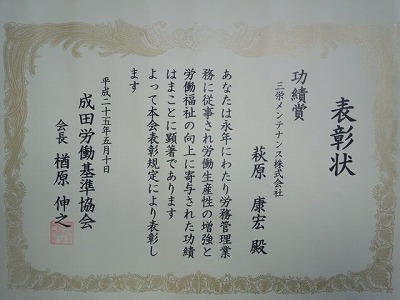 表彰状
功績賞
三栄メンテナンス株式会社
萩原 康宏 殿
あなたは永年にわたり労務管理業
務に従事され労働生産性の増強と
労働福祉の向上に寄与された功績
はまことに顕著であります
よって本会表彰規定により表彰し
ます
平成二十五年五月十日
成田労働基準協会
会長 楢原 伸之